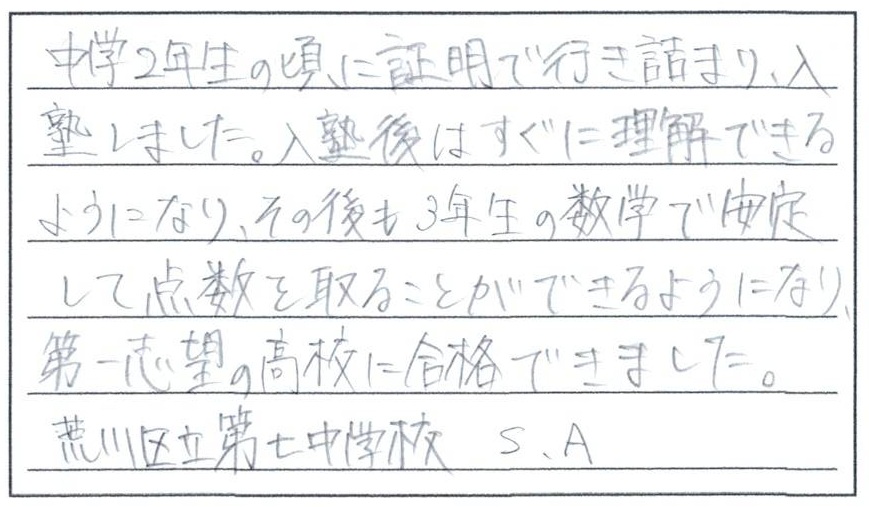 中学2年生の頃に証明で行き詰まり、入
塾しました。入塾後はすぐに理解できる
ようになり、その後も3年生の数学で安定
して点数を取ることができるようになり、
第一志望の高校に合格できました。
荒川区立第七中学校 S、A